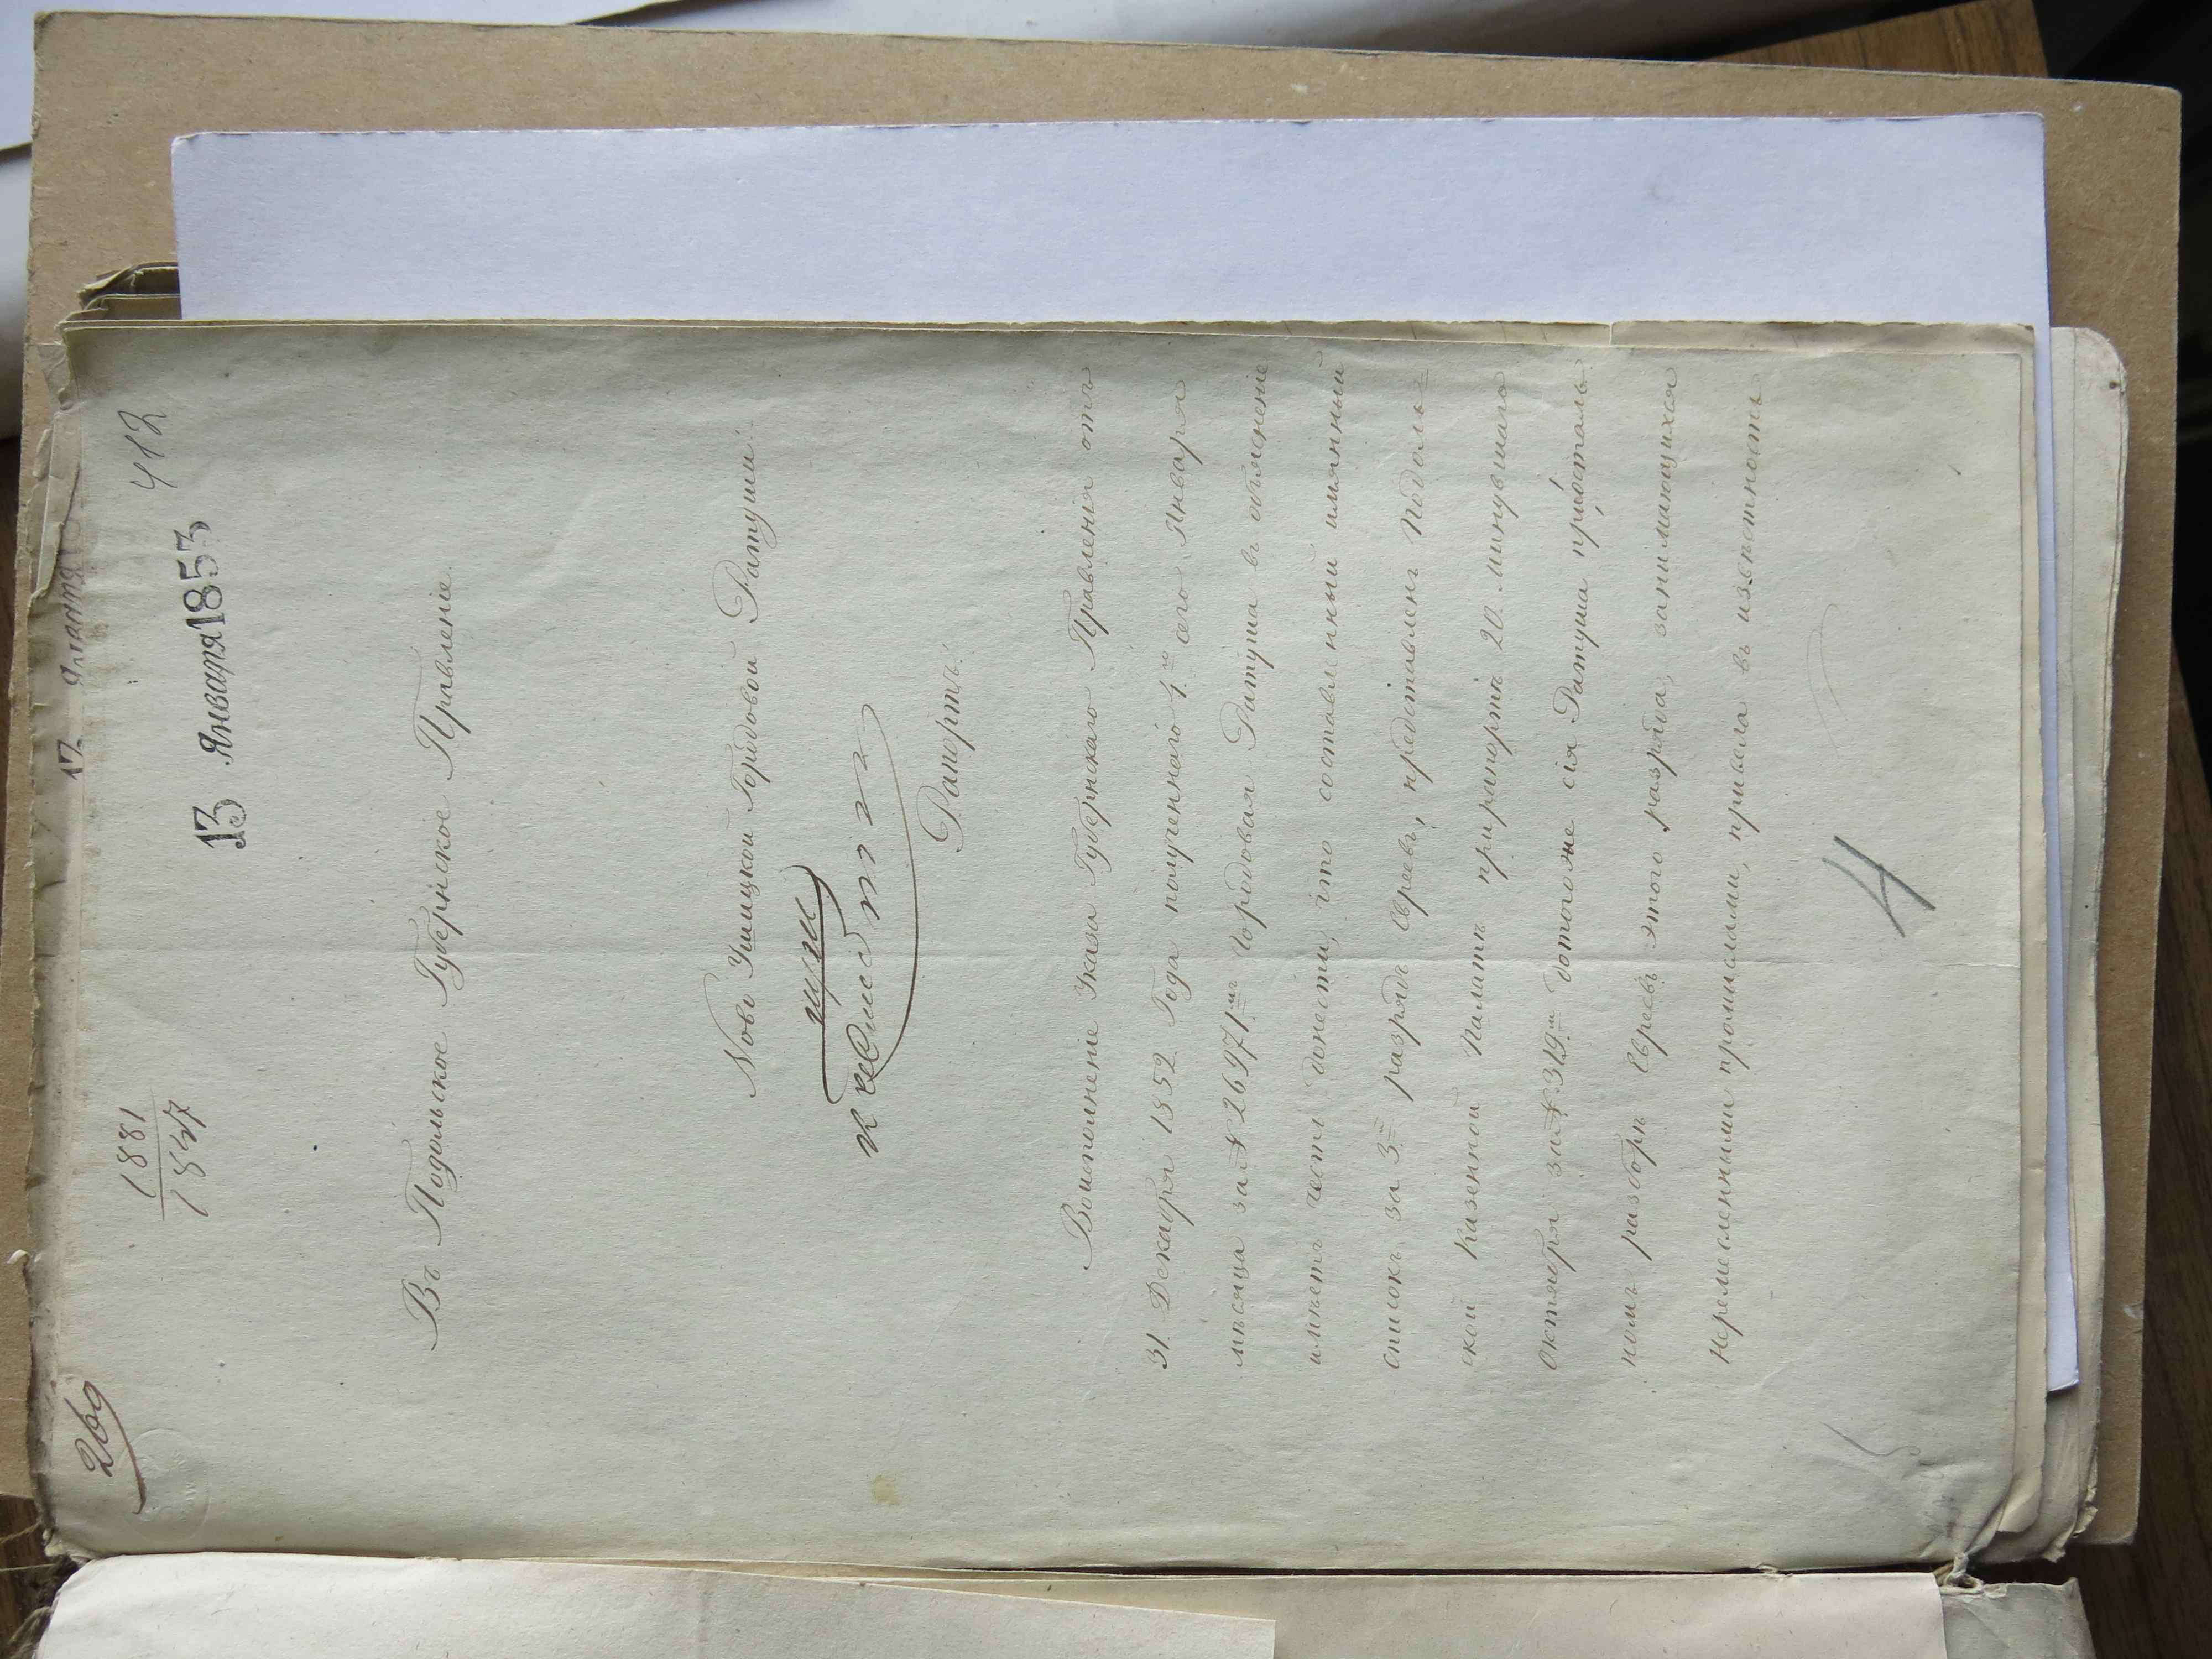 17 Января
412
13 Января 1853
1881
1847
269
Въ Подольское Губернское Правленіе.
Ново Ушицкой Городовой Ратуши.
Рапортъ.
Воисполненіе Указа Губернскаго Правленія отъ
31. Декабря 1852 Года полученного 4.го сего Января
мѣсяца за № 26971мъ Городовая Ратуша въ объясненіе
имѣетъ честь донести, что составленный имянный
списокъ за 3й разрядъ Евреевъ, представленъ Подоль=
ской Казенной Палатѣ при рапортѣ 20. минувшаго
Октября за № 319м дотогоже сія Ратуша пріостоль
номъ разборѣ Евреевъ этого разряда, занимающихся
неремесленными промислами, привела въ извѣстность
4